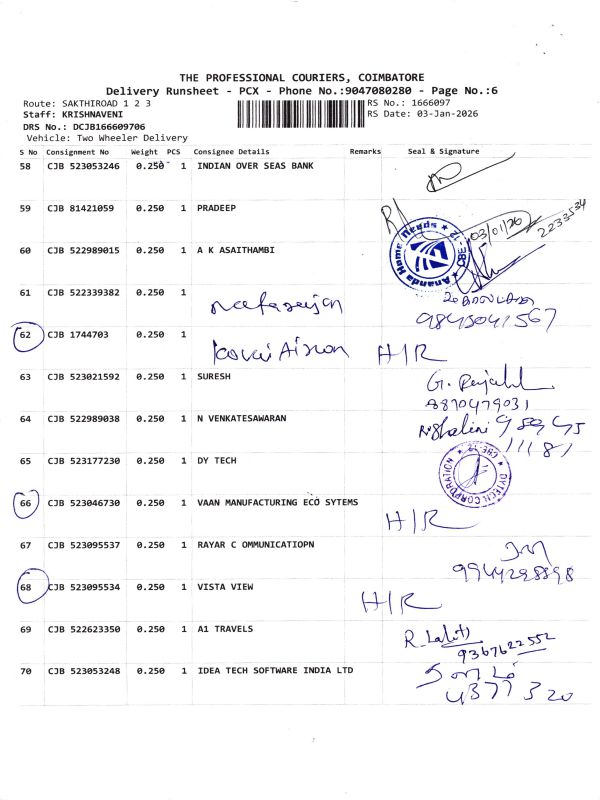 THE PROFESSIONAL COURIERS, COIMBATORE
Delivery Runsheet - PCX - Phone No.:9047080280 - Page No.:6
Route: SAKTHIROAD 1 2 3
RS No.: 1666097
Staff: KRISHNAVENI
RS Date: 03-Jan-2026
DRS No.: DCJB166609706
Vehicle: Two Wheeler Delivery
S No Consignment No Weight PCS Consignee Details Remarks Seal & Signature
58 CJB 523053246 0.250 1 INDIAN OVER SEAS BANK
59 CJB 81421059 0.250 1 PRADEEP
03/01/26
2233534
Ananda Home Needs ★ CBE-12 ★
60 CJB 522989015 0.250 1 A K ASAITHAMBI
61 CJB 522339382 0.250 1
9843041567
62 CJB 1744703 0.250 1 H/R
63 CJB 523021592 0.250 1 SURESH
8870479031
64 CJB 522989038 0.250 1 N VENKATESAWARAN
65 CJB 523177230 0.250 1 DY TECH
DYTECH CORPORATION ★ CBE-12 ★
66 CJB 523046730 0.250 1 VAAN MANUFACTURING ECO SYTEMS H/R
67 CJB 523095537 0.250 1 RAYAR C OMMUNICATIOPN
9944298898
68 CJB 523095534 0.250 1 VISTA VIEW H/R
69 CJB 522623350 0.250 1 A1 TRAVELS
9367622552
70 CJB 523053248 0.250 1 IDEA TECH SOFTWARE INDIA LTD